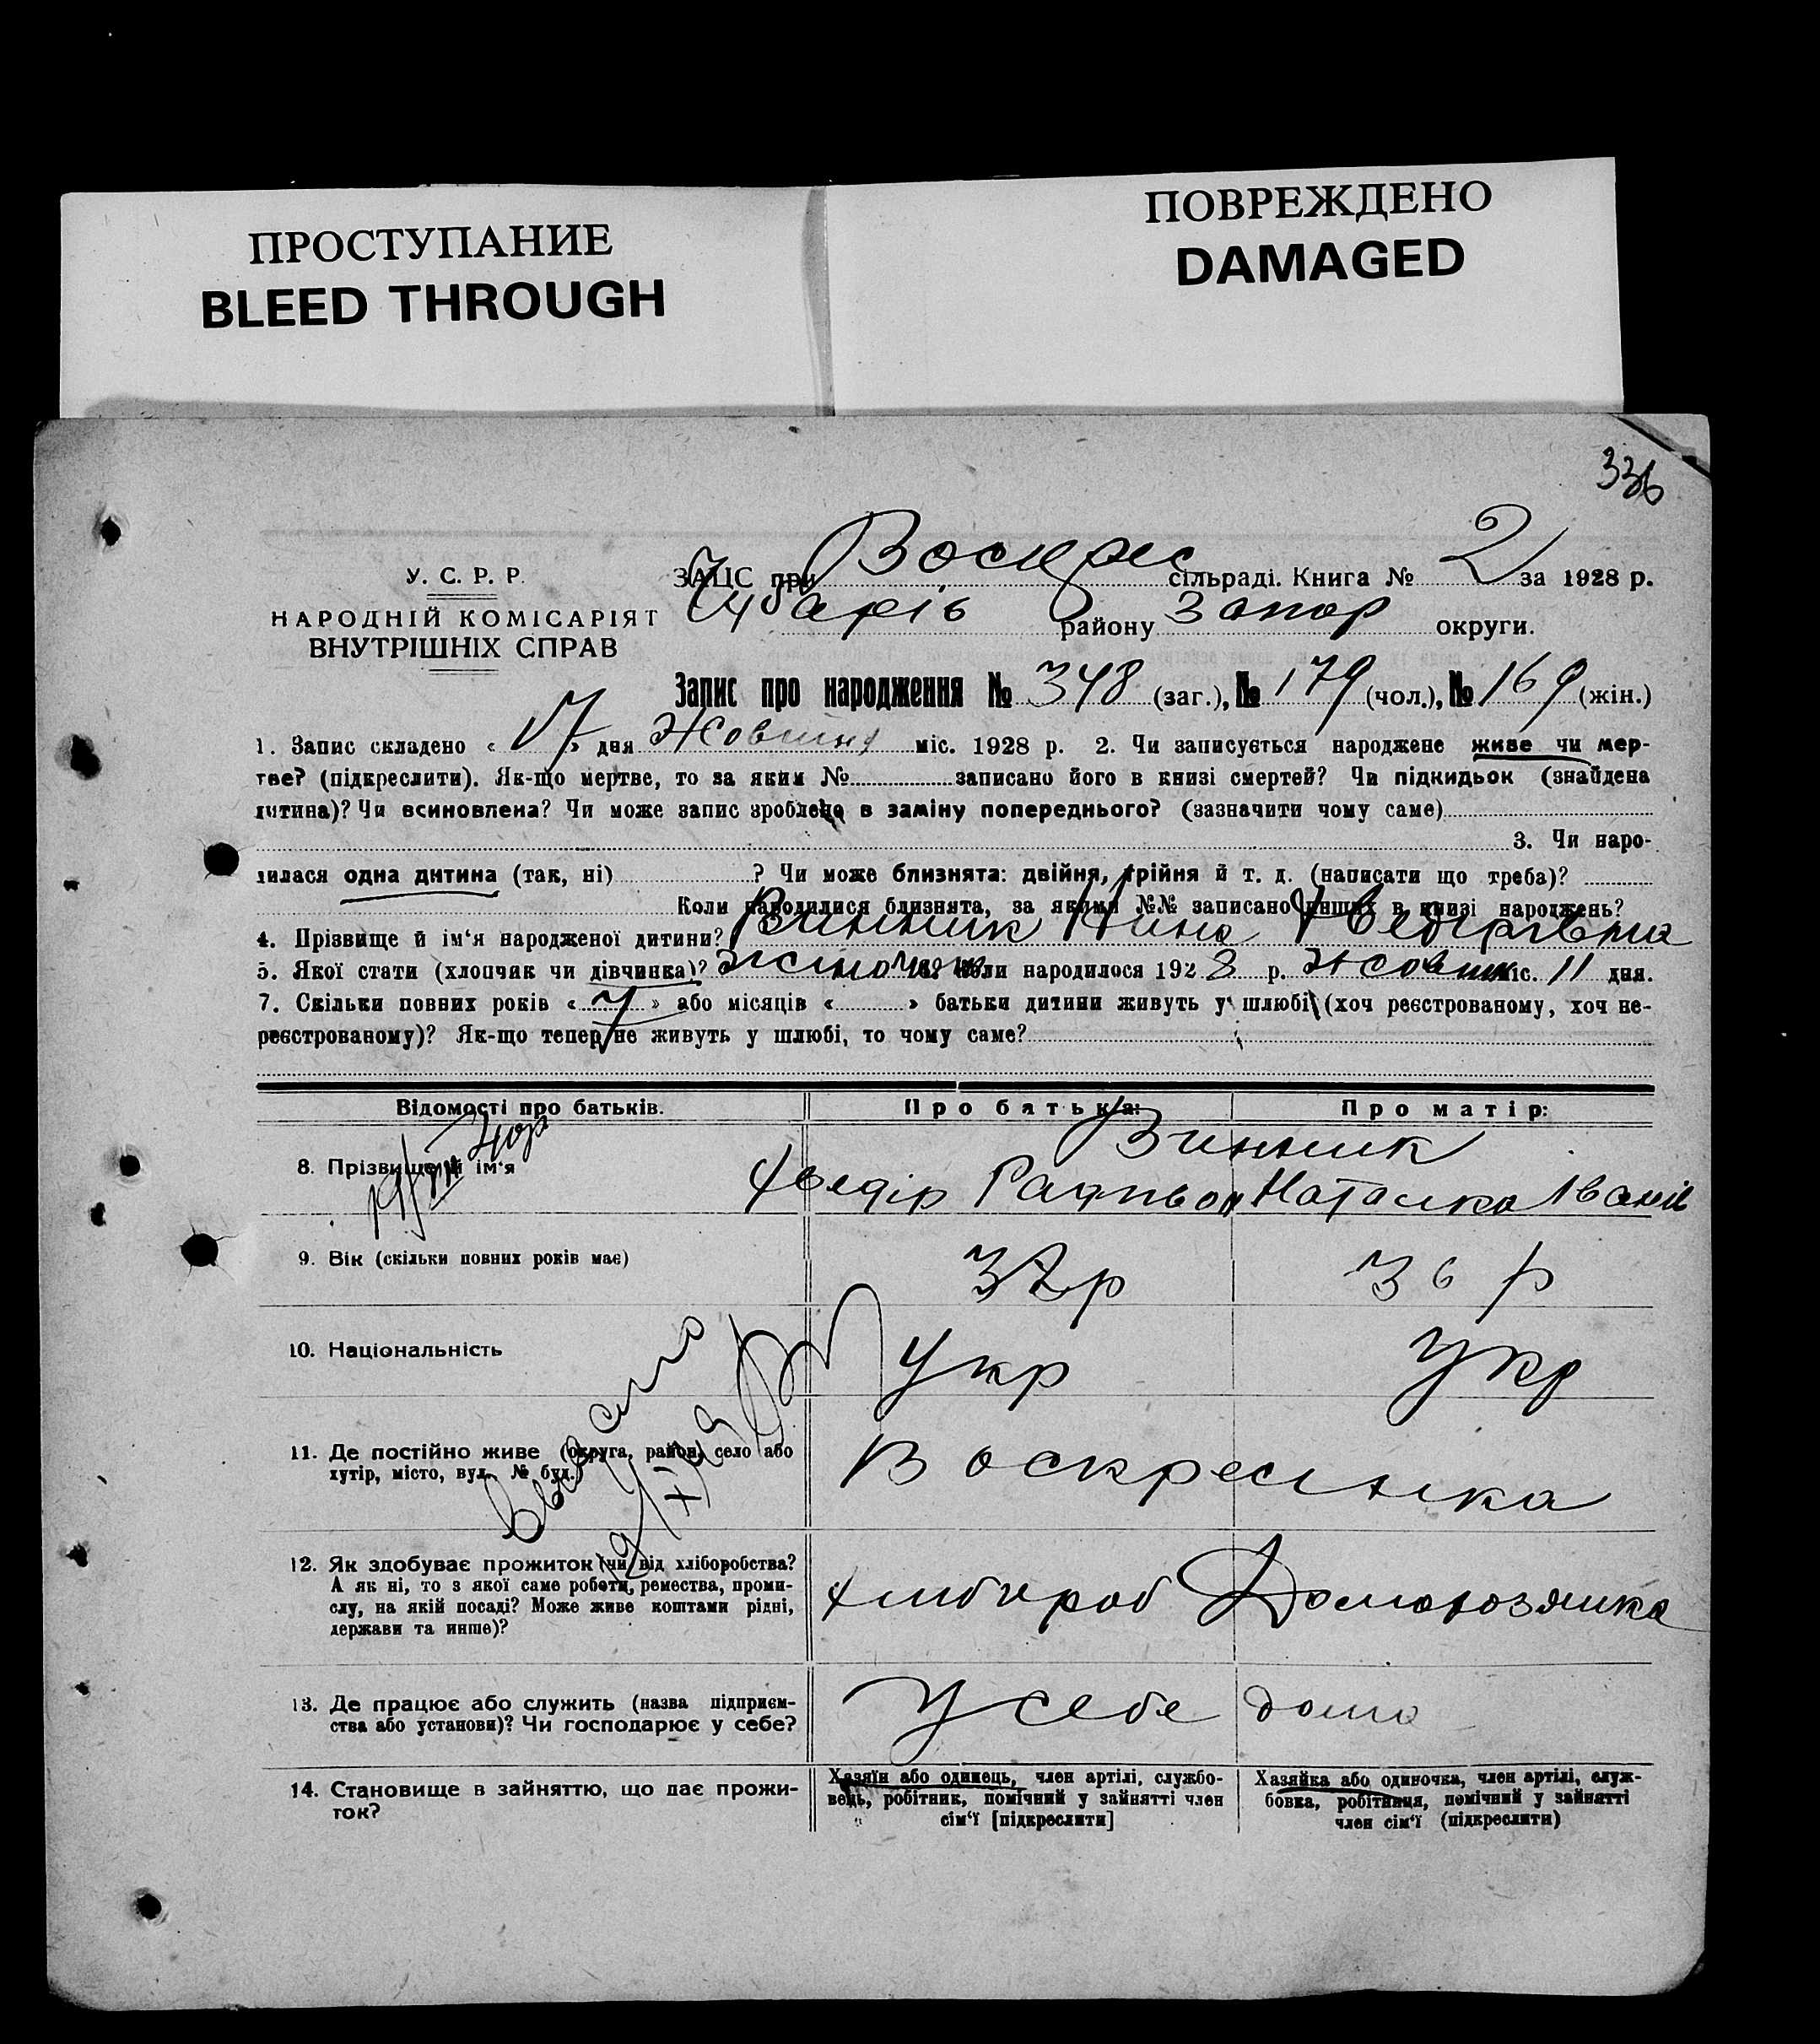 ПРОСТУПАНИЕ
BLEED THROUGH
ПОВРЕЖДЕНО
DAMAGED
336
У. С. Р. Р.
НАРОДНІЙ КОМІСАРІЯТ
ВНУТРІШНІХ СПРАВ
ЗАЦС при Воскрес сільраді. Книга № 2 за 1928 р.
району Запор округи.
Запис про народження № 348 (заг.), № 179 (чол.), № 169 (жін.)
1. Запис складено « 17 » дня Жовтня міс. 1928 р. 2. Чи записується народжене живе чи мер-
тве? (підкреслити). Як-що мертве, то за яким № записано його в книзі смертей? Чи підкидьок (знайдена
дитина)? Чи всиновлена? Чи може запис зроблено в заміну попереднього? (зазначити чому саме)
3. Чи наро-
дилася одна дитина (так, ні) ? Чи може близнята: двійня, трійня й т. д. (написати що треба)?
Коли народилися близнята, за якими №№ записано инших в книзі народжень?
4. Прізвище й ім'я народженої дитини? Винник Нина
5. Якої стати (хлопчак чи дівчинка)? жіноча 6. Коли народилося 1928 р. Жовтня міс. 11 дня.
7. Скільки повних років « 7 » або місяців « » батьки дитини живуть у шлюбі (хоч реєстрованому, хоч не-
реєстрованому)? Як-що тепер не живуть у шлюбі, то чому саме?
Відомості про батьків. Про батька: Про матір:
Винник
8. Прізвище й ім'я Хведір Наталка Іванів
9. Вік (скільки повних років має) 37 р 36 р
10. Національність Укр Укр
11. Де постійно живе (округа, район, село або
хутір, місто, вул. № буд.) Воскресенка
12. Як здобуває прожиток (чи від хліборобства?
А як ні, то з якої саме роботи, ремества, проми-
слу, на якій посаді? Може живе коштами рідні,
держави та инше)? хлибороб Домохозяйка
13. Де працює або служить (назва підприєм-
ства або установи)? Чи господарює у себе? У себе дома
14. Становище в зайняттю, що дає прожи-
ток?
Хазяїн або одинець, член артілі, службо-
вець, робітник, помічний у зайнятті член
сім'ї [підкреслити]
Хазяйка або одиночка, член артілі, служ-
бовка, робітниця, помічний у зайнятті
член сім'ї (підкреслити)